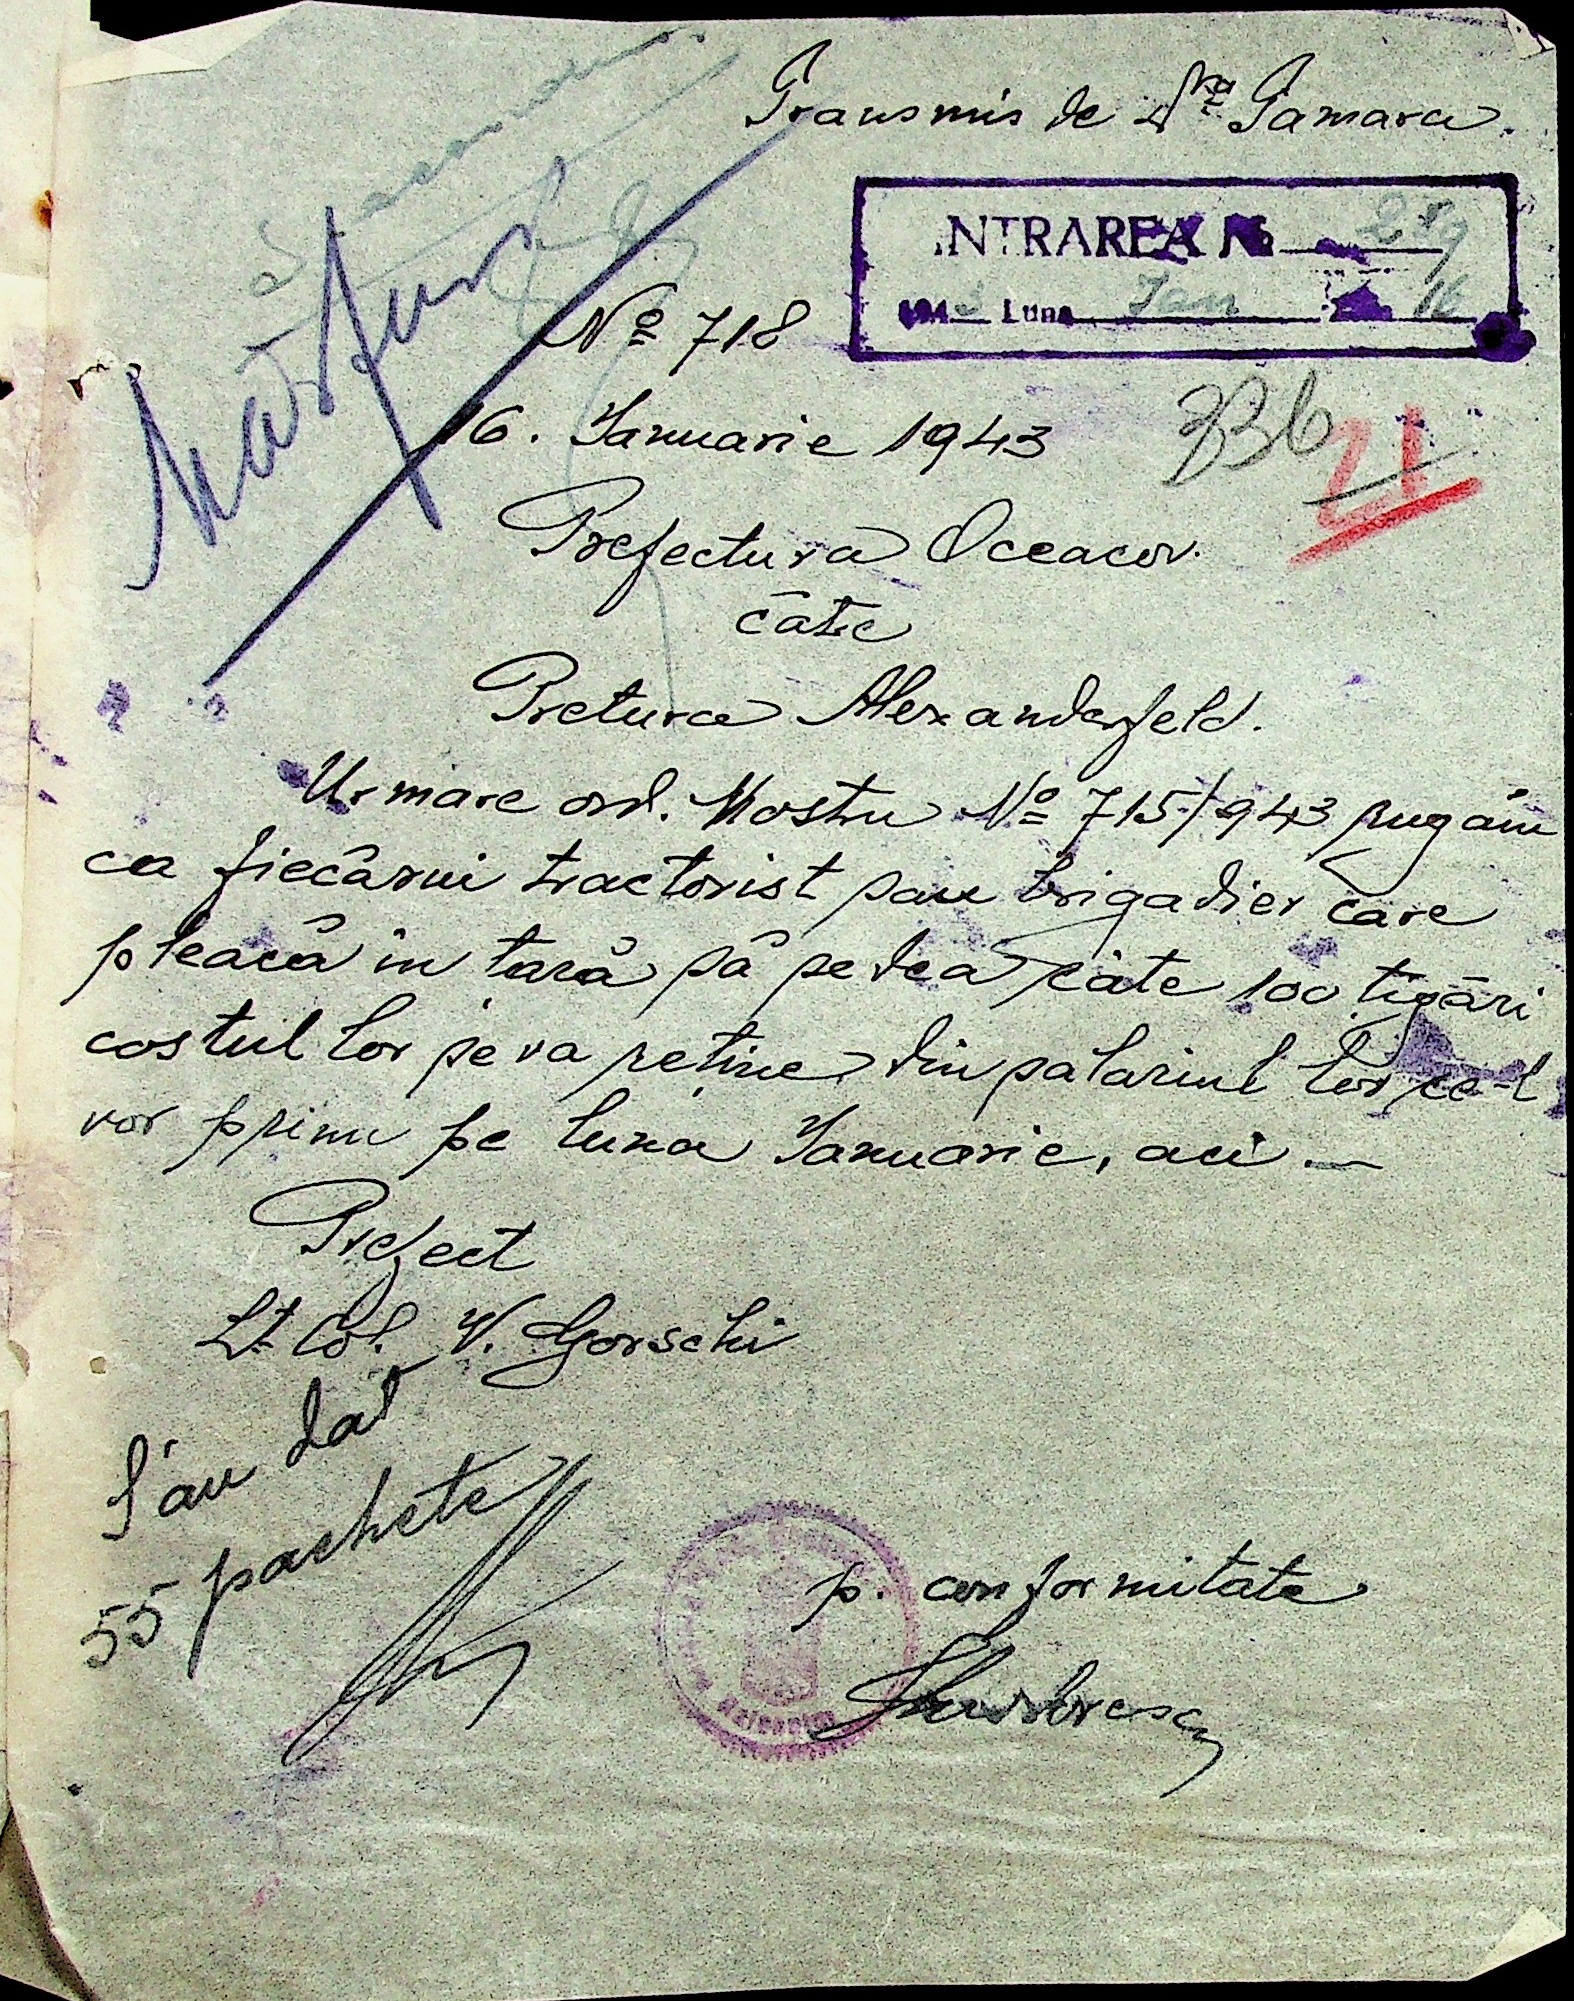 Transmis de Dra Tamara.
INTRAREA No 289
1943 Luna Jan 16
No 718
336
21
16. Ianuarie 1943
Prefectura Oceacov.
cătie
Pretura Alexanderfeld.
Urmare ord. Nostru No 715/943 rugăm
ca fiecărui tractorist sau brigadier care
pleacă in tară să se dea câte 100 tigări
costul lor se va retine din salariul lor ce-l
vor primi pe luna Ianuarie, aci —
Prefect
Lt Col. V. Gorschi
S'au dat
55 pachete
p. conformitate